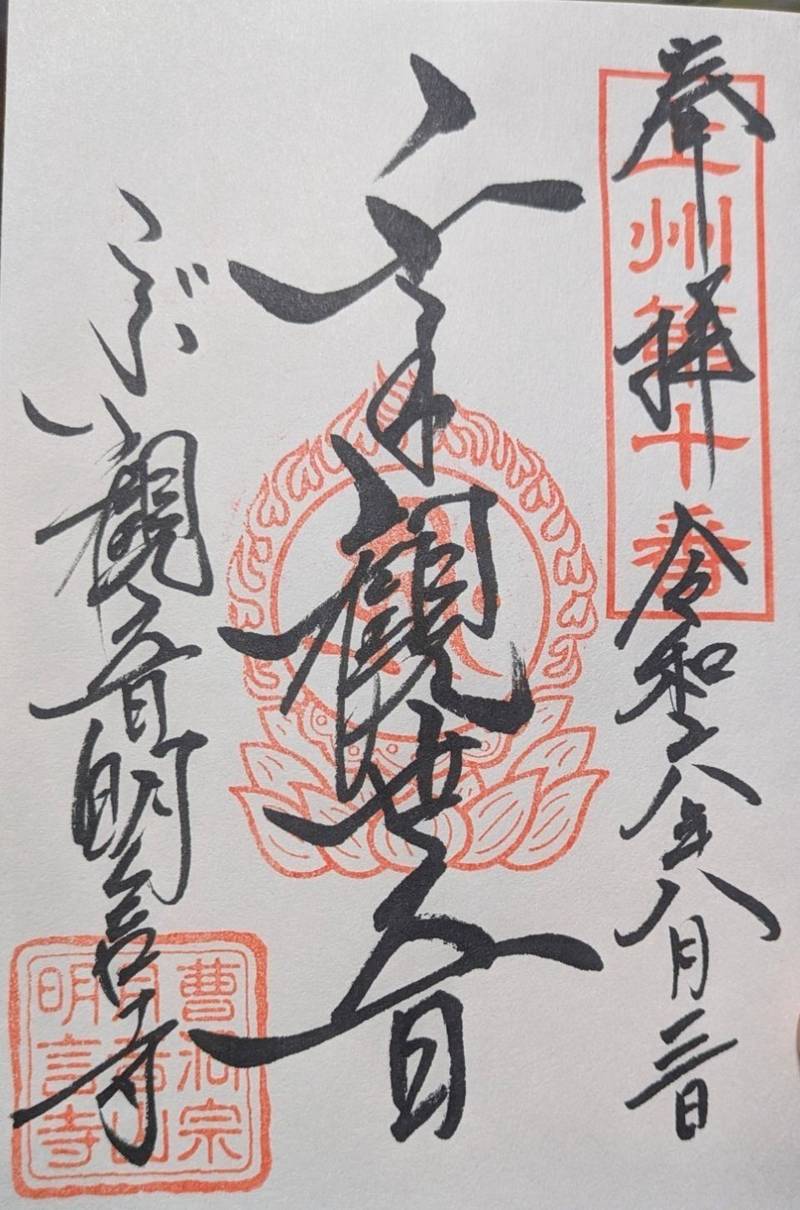 上州第十番
奉拝 令和六年八月三日
千手観世音
こぶい観音 明言寺
曹洞宗
音山
明言寺